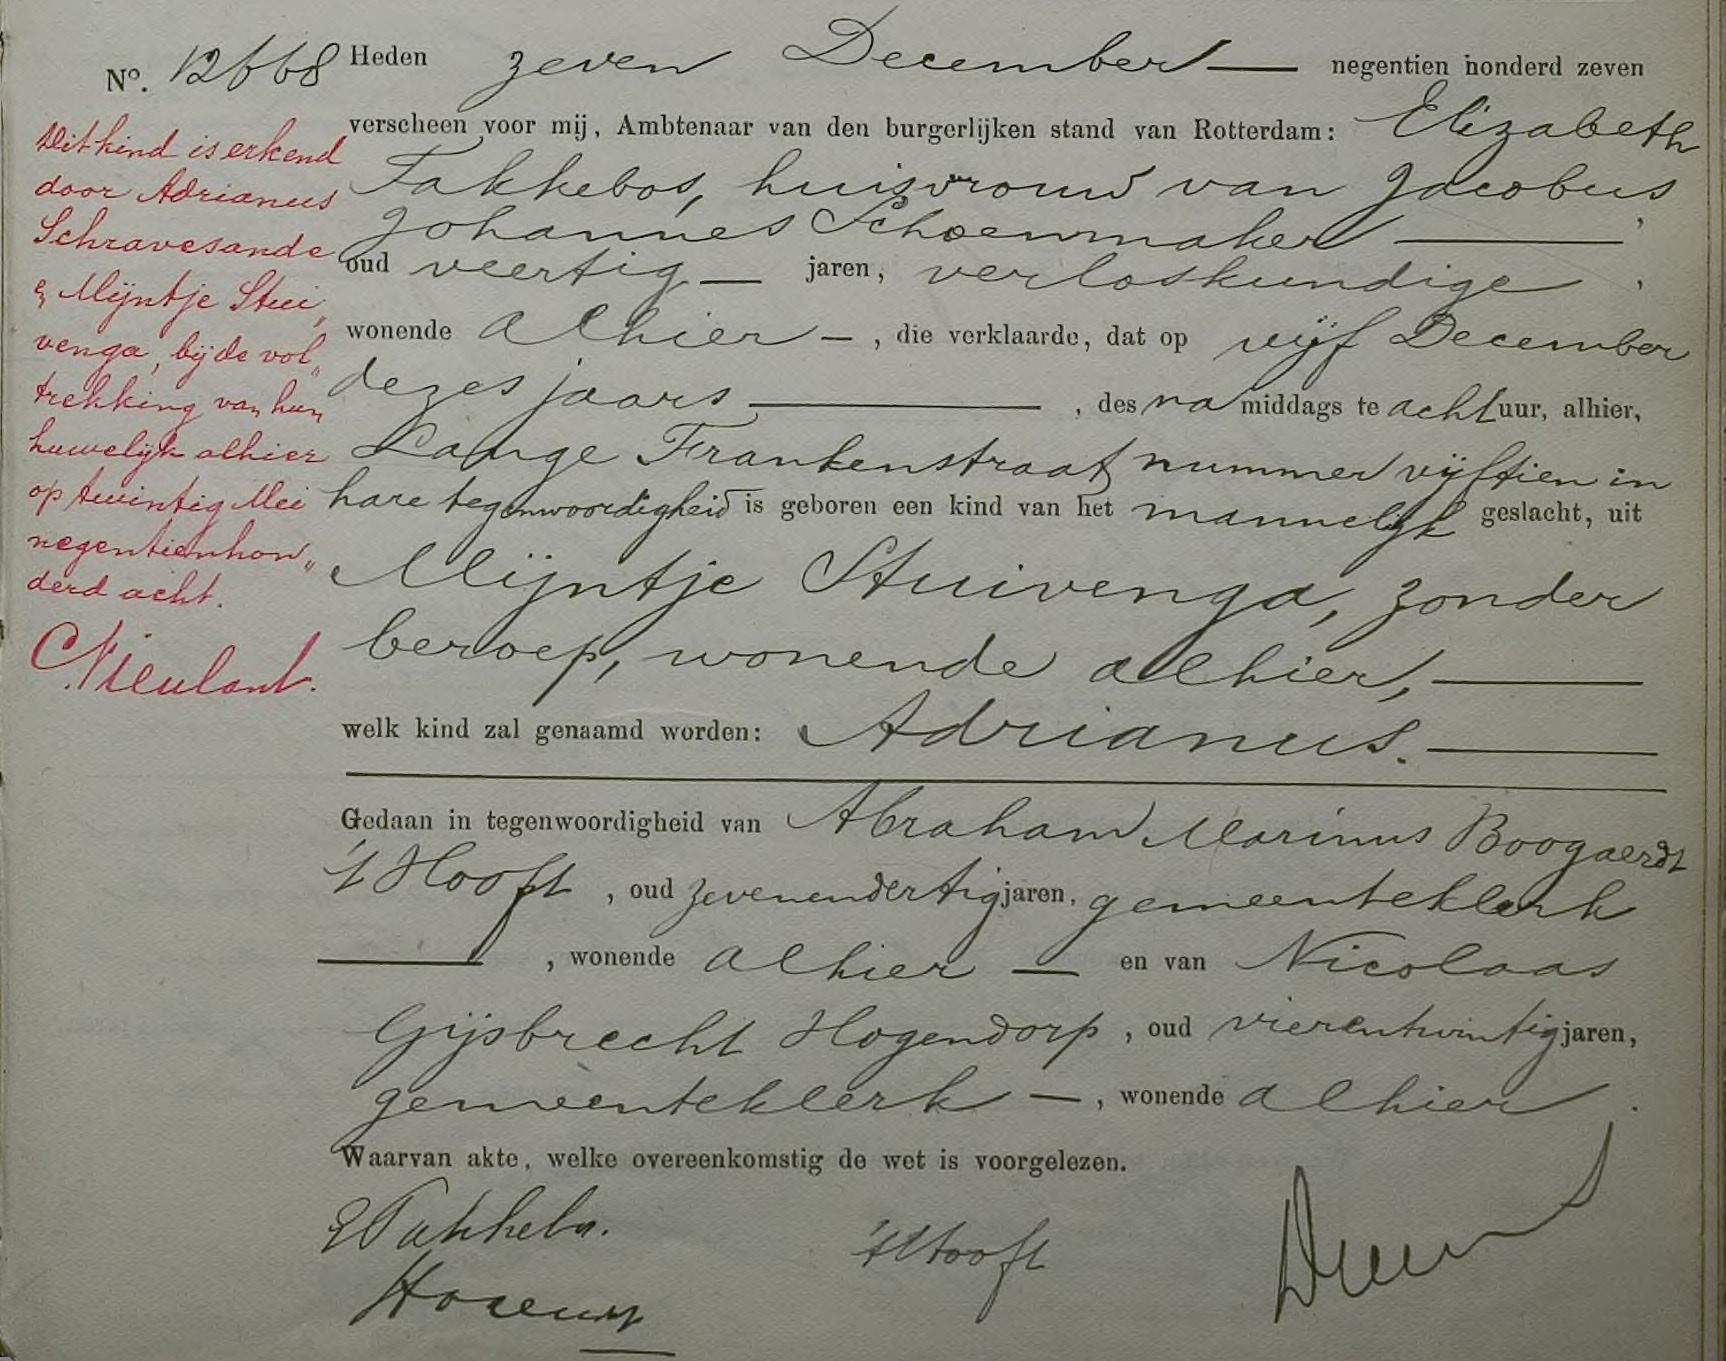 No. 12668 Heden zeven December — negentien honderd zeven
verscheen voor mij, Ambtenaar van den burgerlijken stand van Rotterdam: Elizabeth
Takkebos, huisvrouw van Jacobus
Johannes Schoenmaker — ,
oud veertig — jaren, verloskundige ,
wonende alhier — , die verklaarde, dat op vijf December
dezes jaars — , des namiddags te acht uur, alhier,
Lange Frankenstraat nummer vijftien in
hare tegenwoordigheid is geboren een kind van het mannelijk geslacht, uit
Mijntje Stuivenga, zonder
beroep, wonende alhier, —
welk kind zal genaamd worden: Adrianus. —
Gedaan in tegenwoordigheid van Abraham Marinus Boogaerdt
't Hooft , oud zevenendertig jaren, gemeenteklerk
— , wonende alhier — en van Nicolaas
Gijsbrecht Hogendorp , oud vierentwintig jaren,
gemeenteklerk — , wonende alhier .
Waarvan akte, welke overeenkomstig de wet is voorgelezen.
't Hooft
Dit kind is erkend
door Adrianus
Schravesande
& Mijntje Stui„
venga, bij de vol„
trekking van hun
huwelijk alhier
op twintig Mei
negentienhon„
derd acht.